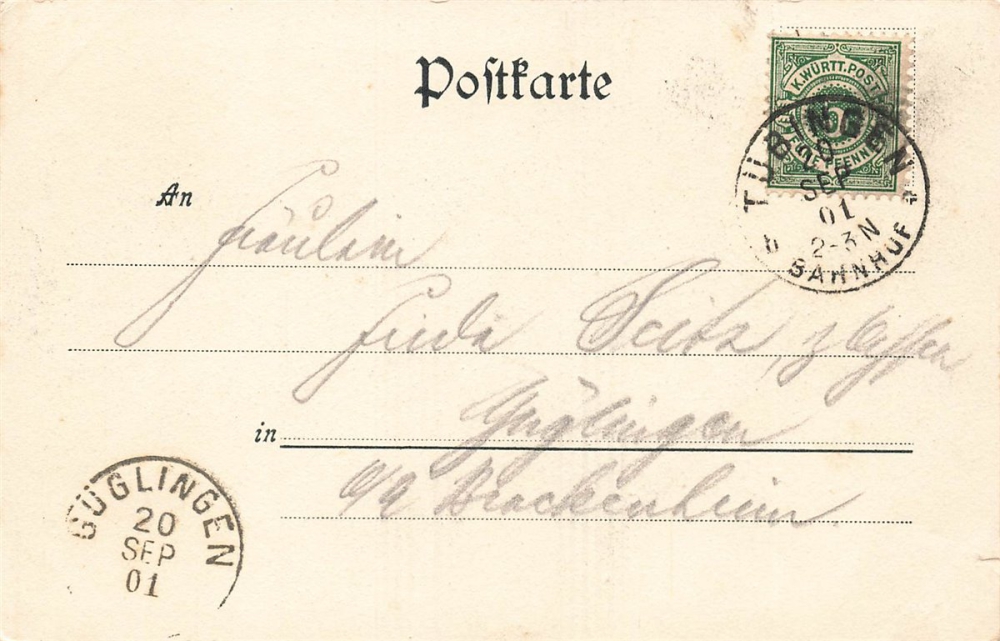 Postkarte
K. WÜRTT. POST
5
FÜNF PFENNIG
TÜBINGEN
20
SEP
01
2-3 N
b BAHNHOF *
An
Fräulein
Seitz, z.
in Güglingen
O/A Brackenheim.
GÜGLINGEN
20
SEP
01